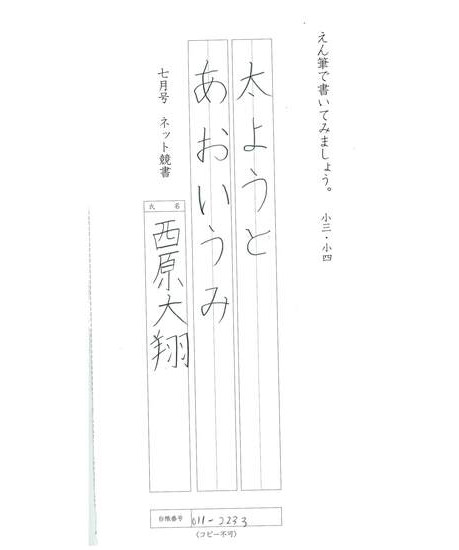 えん筆で書いてみましょう。 小三・小四
太ようと
あおいうみ
七月号 ネット競書
氏名
西原大翔
会員番号 011-2233
(コピー不可)